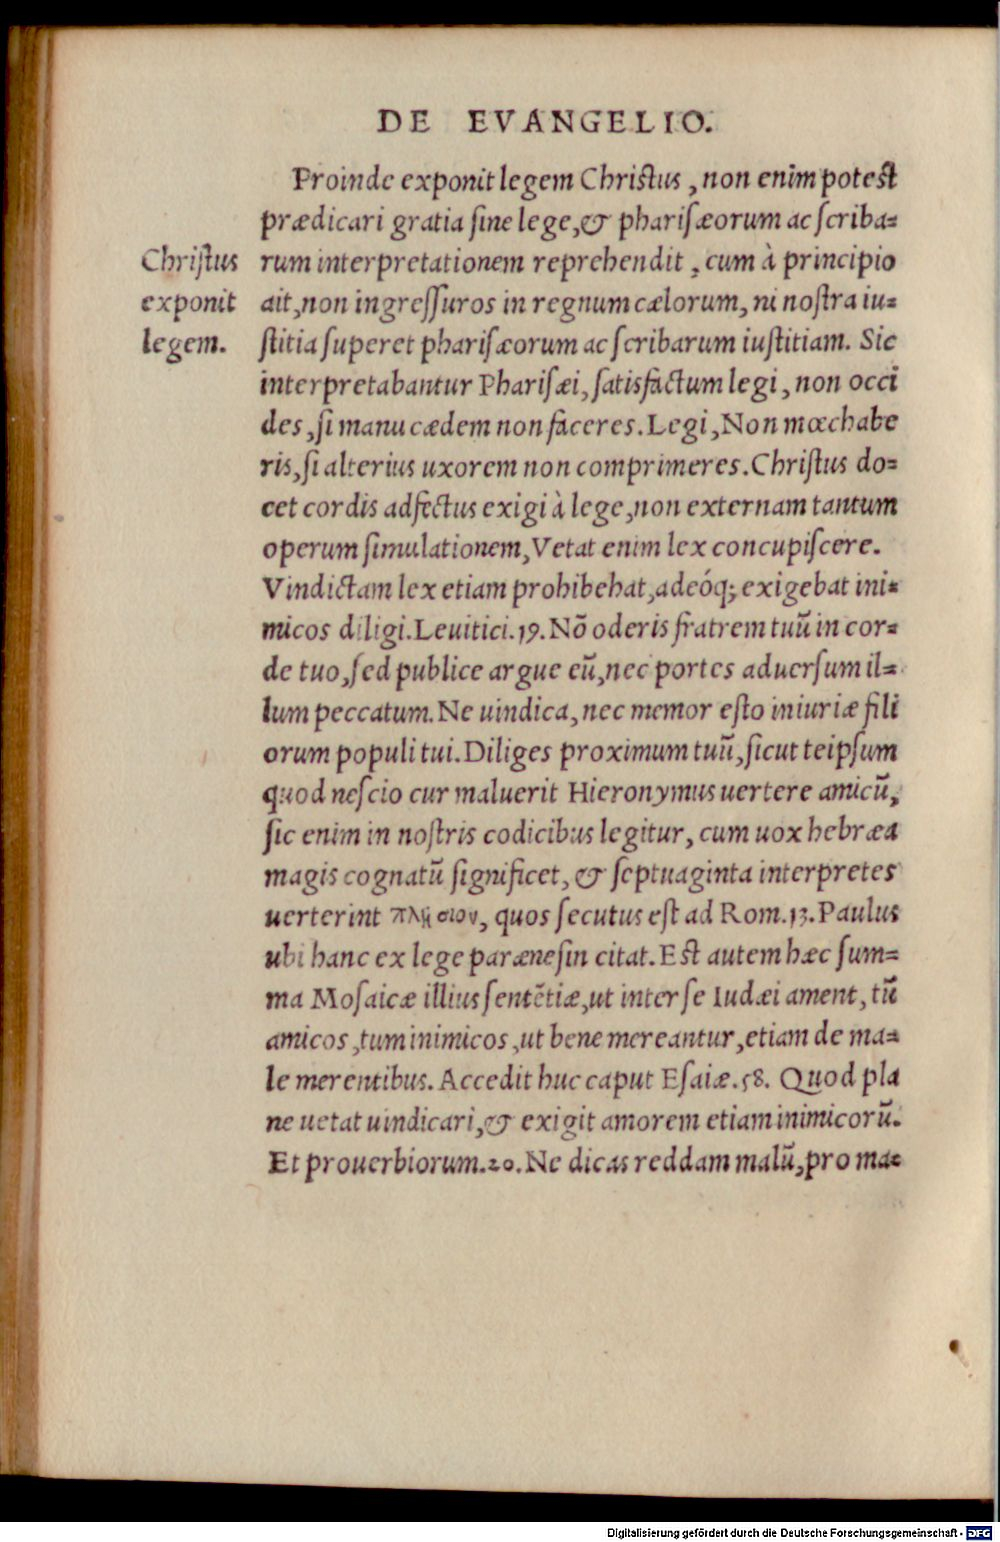 DE EVANGELIO.
Proinde exponit legem Christus, non enim potest
prædicari gratia sine lege, & pharisæorum ac scriba=
Christus
exponit
legem.
rum interpretationem reprehendit, cum à principio
ait, non ingressuros in regnum cælorum, ni nostra iu=
stitia superet pharisæorum ac scribarum iustitiam. Sic
interpretabantur Pharisæi, satisfactum legi, non occi
des, si manu cædem non faceres. Legi, Non mœchabe
ris, si alterius uxorem non comprimeres. Christus do=
cet cordis adfectus exigi à lege, non externam tantum
operum simulationem, Vetat enim lex concupiscere.
Vindictam lex etiam prohibebat, adeóq; exigebat ini=
micos diligi. Leuitici. 19. Nō oderis fratrem tuū in cor=
de tuo, sed publice argue eū, nec portes aduersum il=
lum peccatum. Ne uindica, nec memor esto iniuriæ fili
orum populi tui. Diliges proximum tuū, sicut teipsum
quod nescio cur maluerit Hieronymus uertere amicū,
sic enim in nostris codicibus legitur, cum uox hebræa
magis cognatū significet, & septuaginta interpretes
uerterint πλησιον, quos secutus est ad Rom. 13. Paulus
ubi hanc ex lege parænesin citat. Est autem hæc sum=
ma Mosaicæ illius sentētiæ, ut inter se Iudæi ament, tū
amicos, tum inimicos, ut bene mereantur, etiam de ma=
le merentibus. Accedit huc caput Esaiæ. 58. Quod pla
ne uetat uindicari, & exigit amorem etiam inimicorū.
Et prouerbiorum. 20. Ne dicas reddam malū, pro ma=
Digitalisierung gefördert durch die Deutsche Forschungsgemeinschaft - DFG